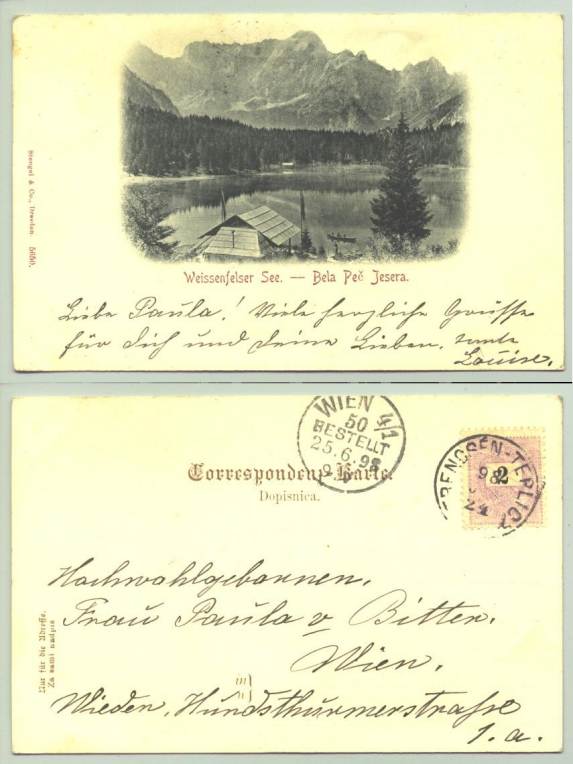 Stengel & Co., Dresden. 5650.
Weissenfelser See. — Bela Peč Jesera.
Liebe Paula! Viele herzliche Grüsse
für dich und deine Lieben. Tante
Louise.
WIEN 4/1
50
BESTELLT
25.6.98
Correspondenz-Karte.
Dopisnica.
TRENCSÉN-TEPLICZ
98
24
2
Nur für die Adresse.
Za sami naslov
Hochwohlgebornen,
Frau Paula v Bitter.
Wien.
in
Wieden, Hundsthurmerstrasse
1.a.